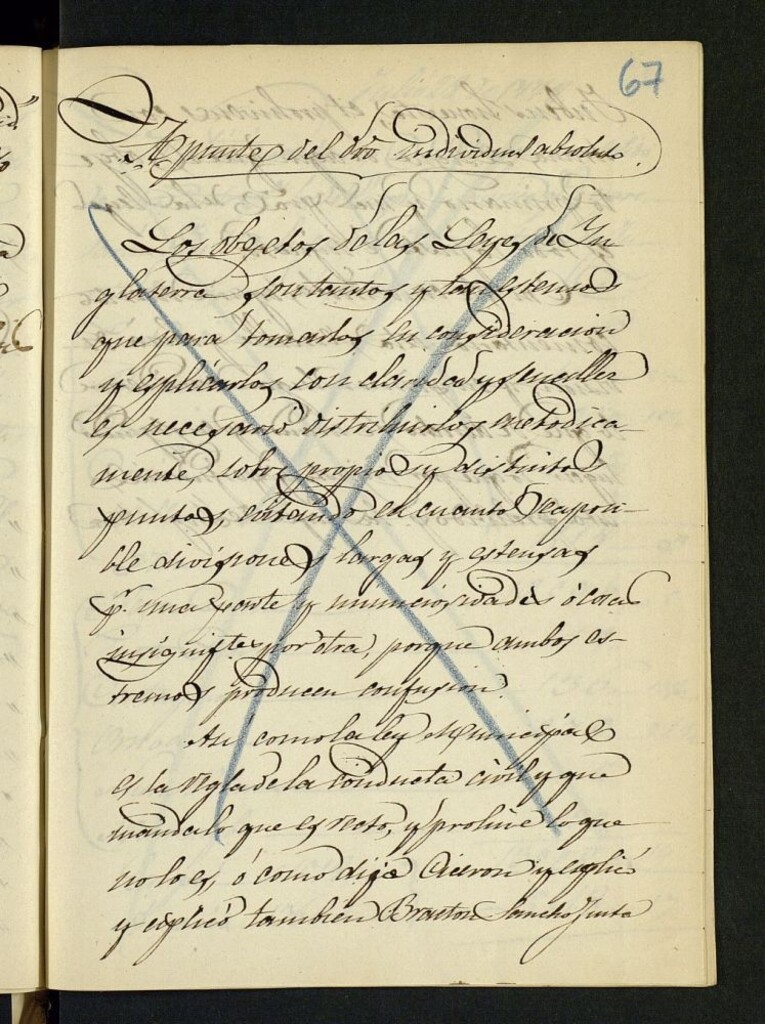 67
Apuntes del dro individual absoluto.
Los objetos de las Leyes de In-
glaterra son tantos y tan estensos
que para tomarlos en consideracion
y esplicarlos con claridad y sencillez
es necesario distribuirlos metodica-
mente, sobre propios y distintos
puntos, evitando en cuanto sea posi-
ble divisiones largas y estensas
pr. una parte y minuciosidades ó cosas
insigniftes por otra, porque ambos es-
tremos producen confusion.
Asi como la ley Municipal
es la regla de la conducta civil y que
manda lo que es recto, y prohive lo que
no lo es, ó como dijo Ciceron y esplicó
y esplicó tambien Bracton Sancho Justa